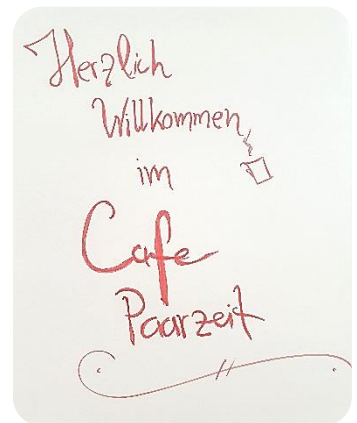 Herzlich
Willkommen
im
Cafe
Paarzeit